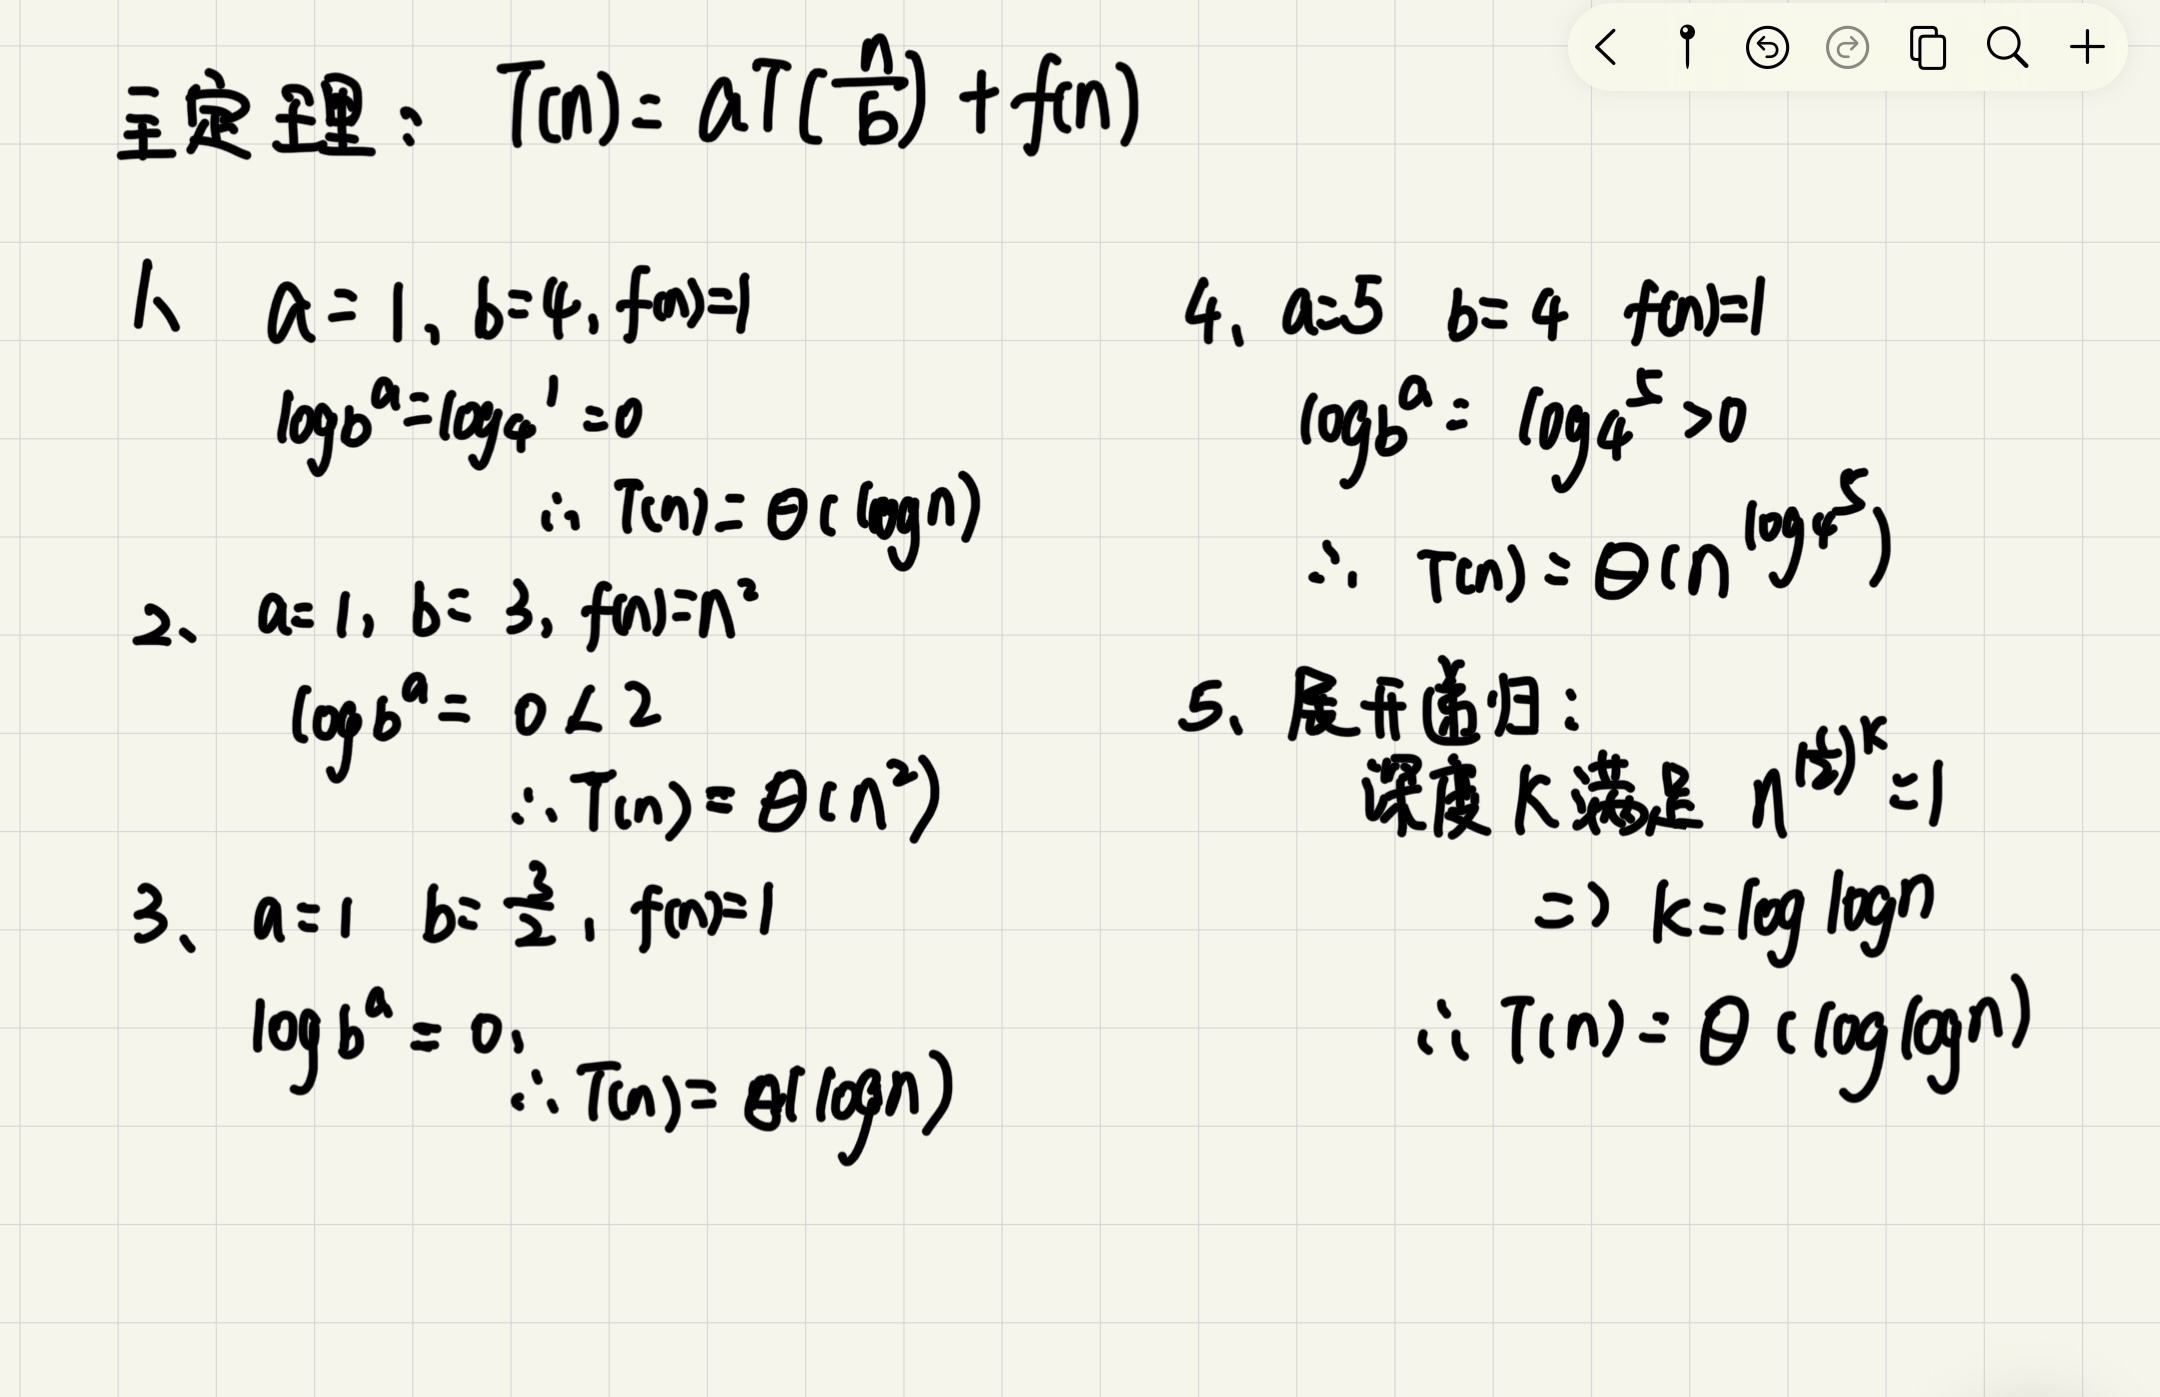 主定理： T(n) = aT(n/b) + f(n)
1、 a = 1, b=4, f(n)=1
log_b^a = log_4^1 = 0
∴ T(n) = θ(logn)
2、 a=1, b= 3, f(n)=n²
log_b^a = 0 < 2
∴ T(n) = θ(n²)
3、 a=1 b= 3/2, f(n)=1
log_b^a = 0,
∴ T(n) = θ(logn)
4、 a=5 b= 4 f(n)=1
log_b^a = log_4^5 >0
∴ T(n) = θ(n^(log_4^5))
5、 展开递归：
深度 K 满足 n^((1/2)^K) =1
=> K=log logn
∴ T(n) = θ(log logn)